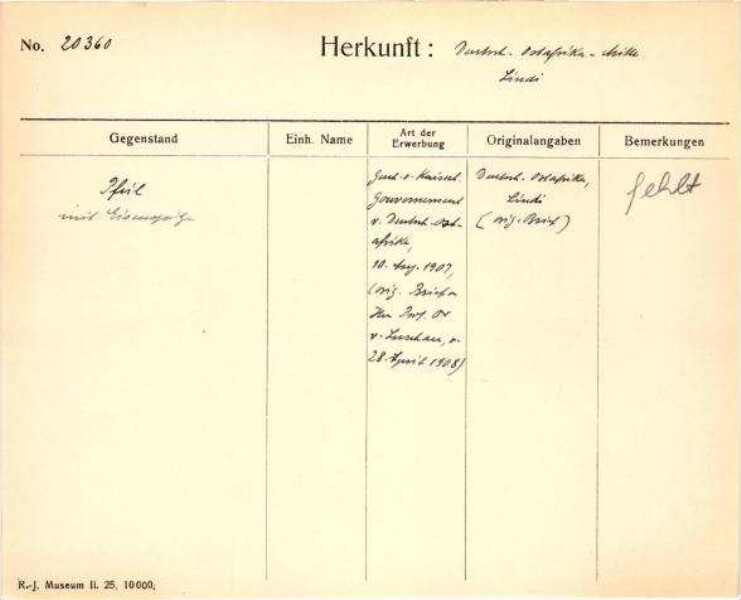 No. 20360
Herkunft: Deutsch-Ostafrika-
Lindi
Gegenstand
Einh. Name
Art der Erwerbung
Originalangaben
Bemerkungen
Pfeil
mit Eisenspitze
Gesch. v. Kaiserl.
Gouvernement
v. Deutsch-Ost-
afrika,
10. Aug. 1907,
(orig. Brief
Prof. Dr
v. Luschan, v.
28. April 1908)
Deutsch-Ostafrika,
Lindi
(orig. Brief)
fehlt
R.-J. Museum II. 25, 10000;